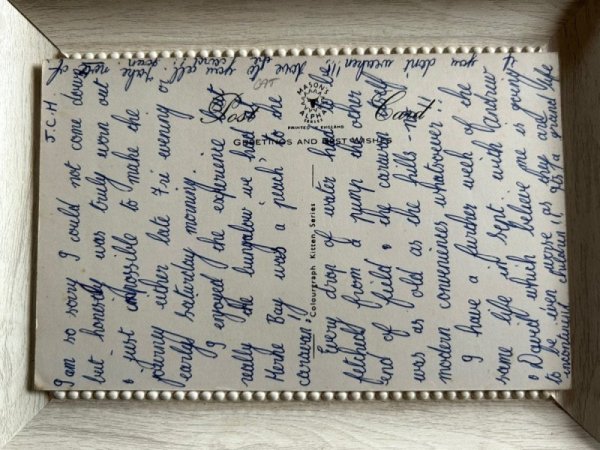 J.C.H
I am so sorry I could not come down
but honestly was truly worn out
& just impossible to make the
journey either late Fri evening or
early Saturday morning.
I enjoyed the experience but
really the bungalow we had at
Herne Bay was a "peach" to the
caravan!!
Every drop of water had to be
fetched from a pump the other
end of field & the caravan itself
was as old as the hills - no
modern conveniences whatsoever.
I have a further week of the
same life in Sept. with Andrew
& David which believe me is going
to be even worse as they are
children. It is a grand life
if you don't weaken!!!
Love to you all.
Take note of
Post Card
MASON'S
ALPHA
SERIES
PRINTED IN ENGLAND
GREETINGS AND BEST WISHES
Colourgraph Kitten, Series